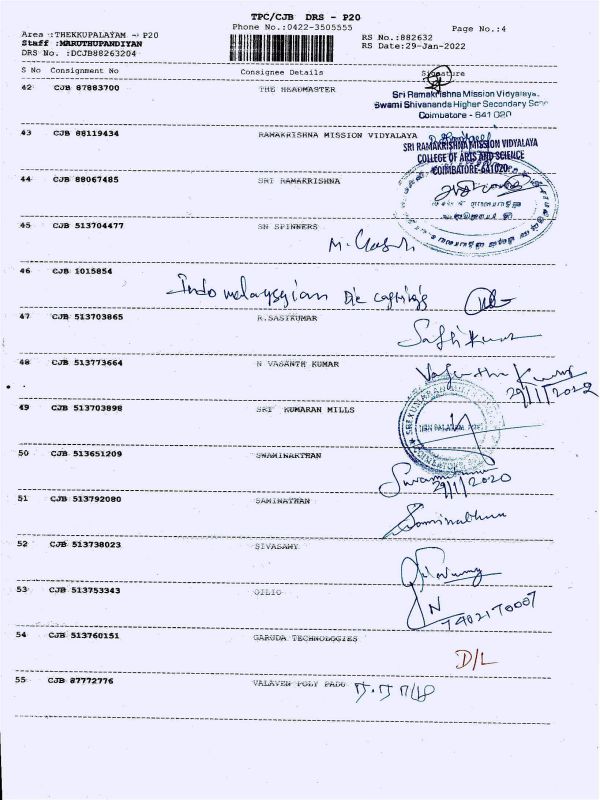 TPC/CJB DRS - P20
Phone No.:0422-3505555
Page No.:4
Area :THEKKUPALAYAM - P20
Staff :MARUTHUPANDIYAN
DRS No. :DCJB88263204
RS No.:882632
RS Date:29-Jan-2022
S No Consignment No Consignee Details Signature
42 CJB 87883700 THE HEADMASTER
Sri Ramakrishna Mission Vidyalaya,
Swami Shivananda Higher Secondary
Coimbatore - 641 020
43 CJB 88119434 RAMAKRISHNA MISSION VIDYALAYA
SRI RAMAKRISHNA MISSION VIDYALAYA
COLLEGE OF ARTS AND SCIENCE
COIMBATORE-641020
44 CJB 88067485 SRI RAMAKRISHNA
45 CJB 513704477 SN SPINNERS
46 CJB 1015854
Indo malaysyian Die castings
47 CJB 513703865 R.SASIKUMAR
48 CJB 513773664 N VASANTH KUMAR
Vasantha Kumar
29/1/2022
49 CJB 513703898 SRI KUMARAN MILLS
50 CJB 513651209 SWAMINATHAN
29/1/2020
51 CJB 513792080 SAMINATHAN
Saminathan
52 CJB 513738023 SIVASAMY
53 CJB 513753343 OILIO
N
7402170007
54 CJB 513760151 GARUDA TECHNOLOGIES
D/L
55 CJB 87772776 VALAVEN POLY PADU